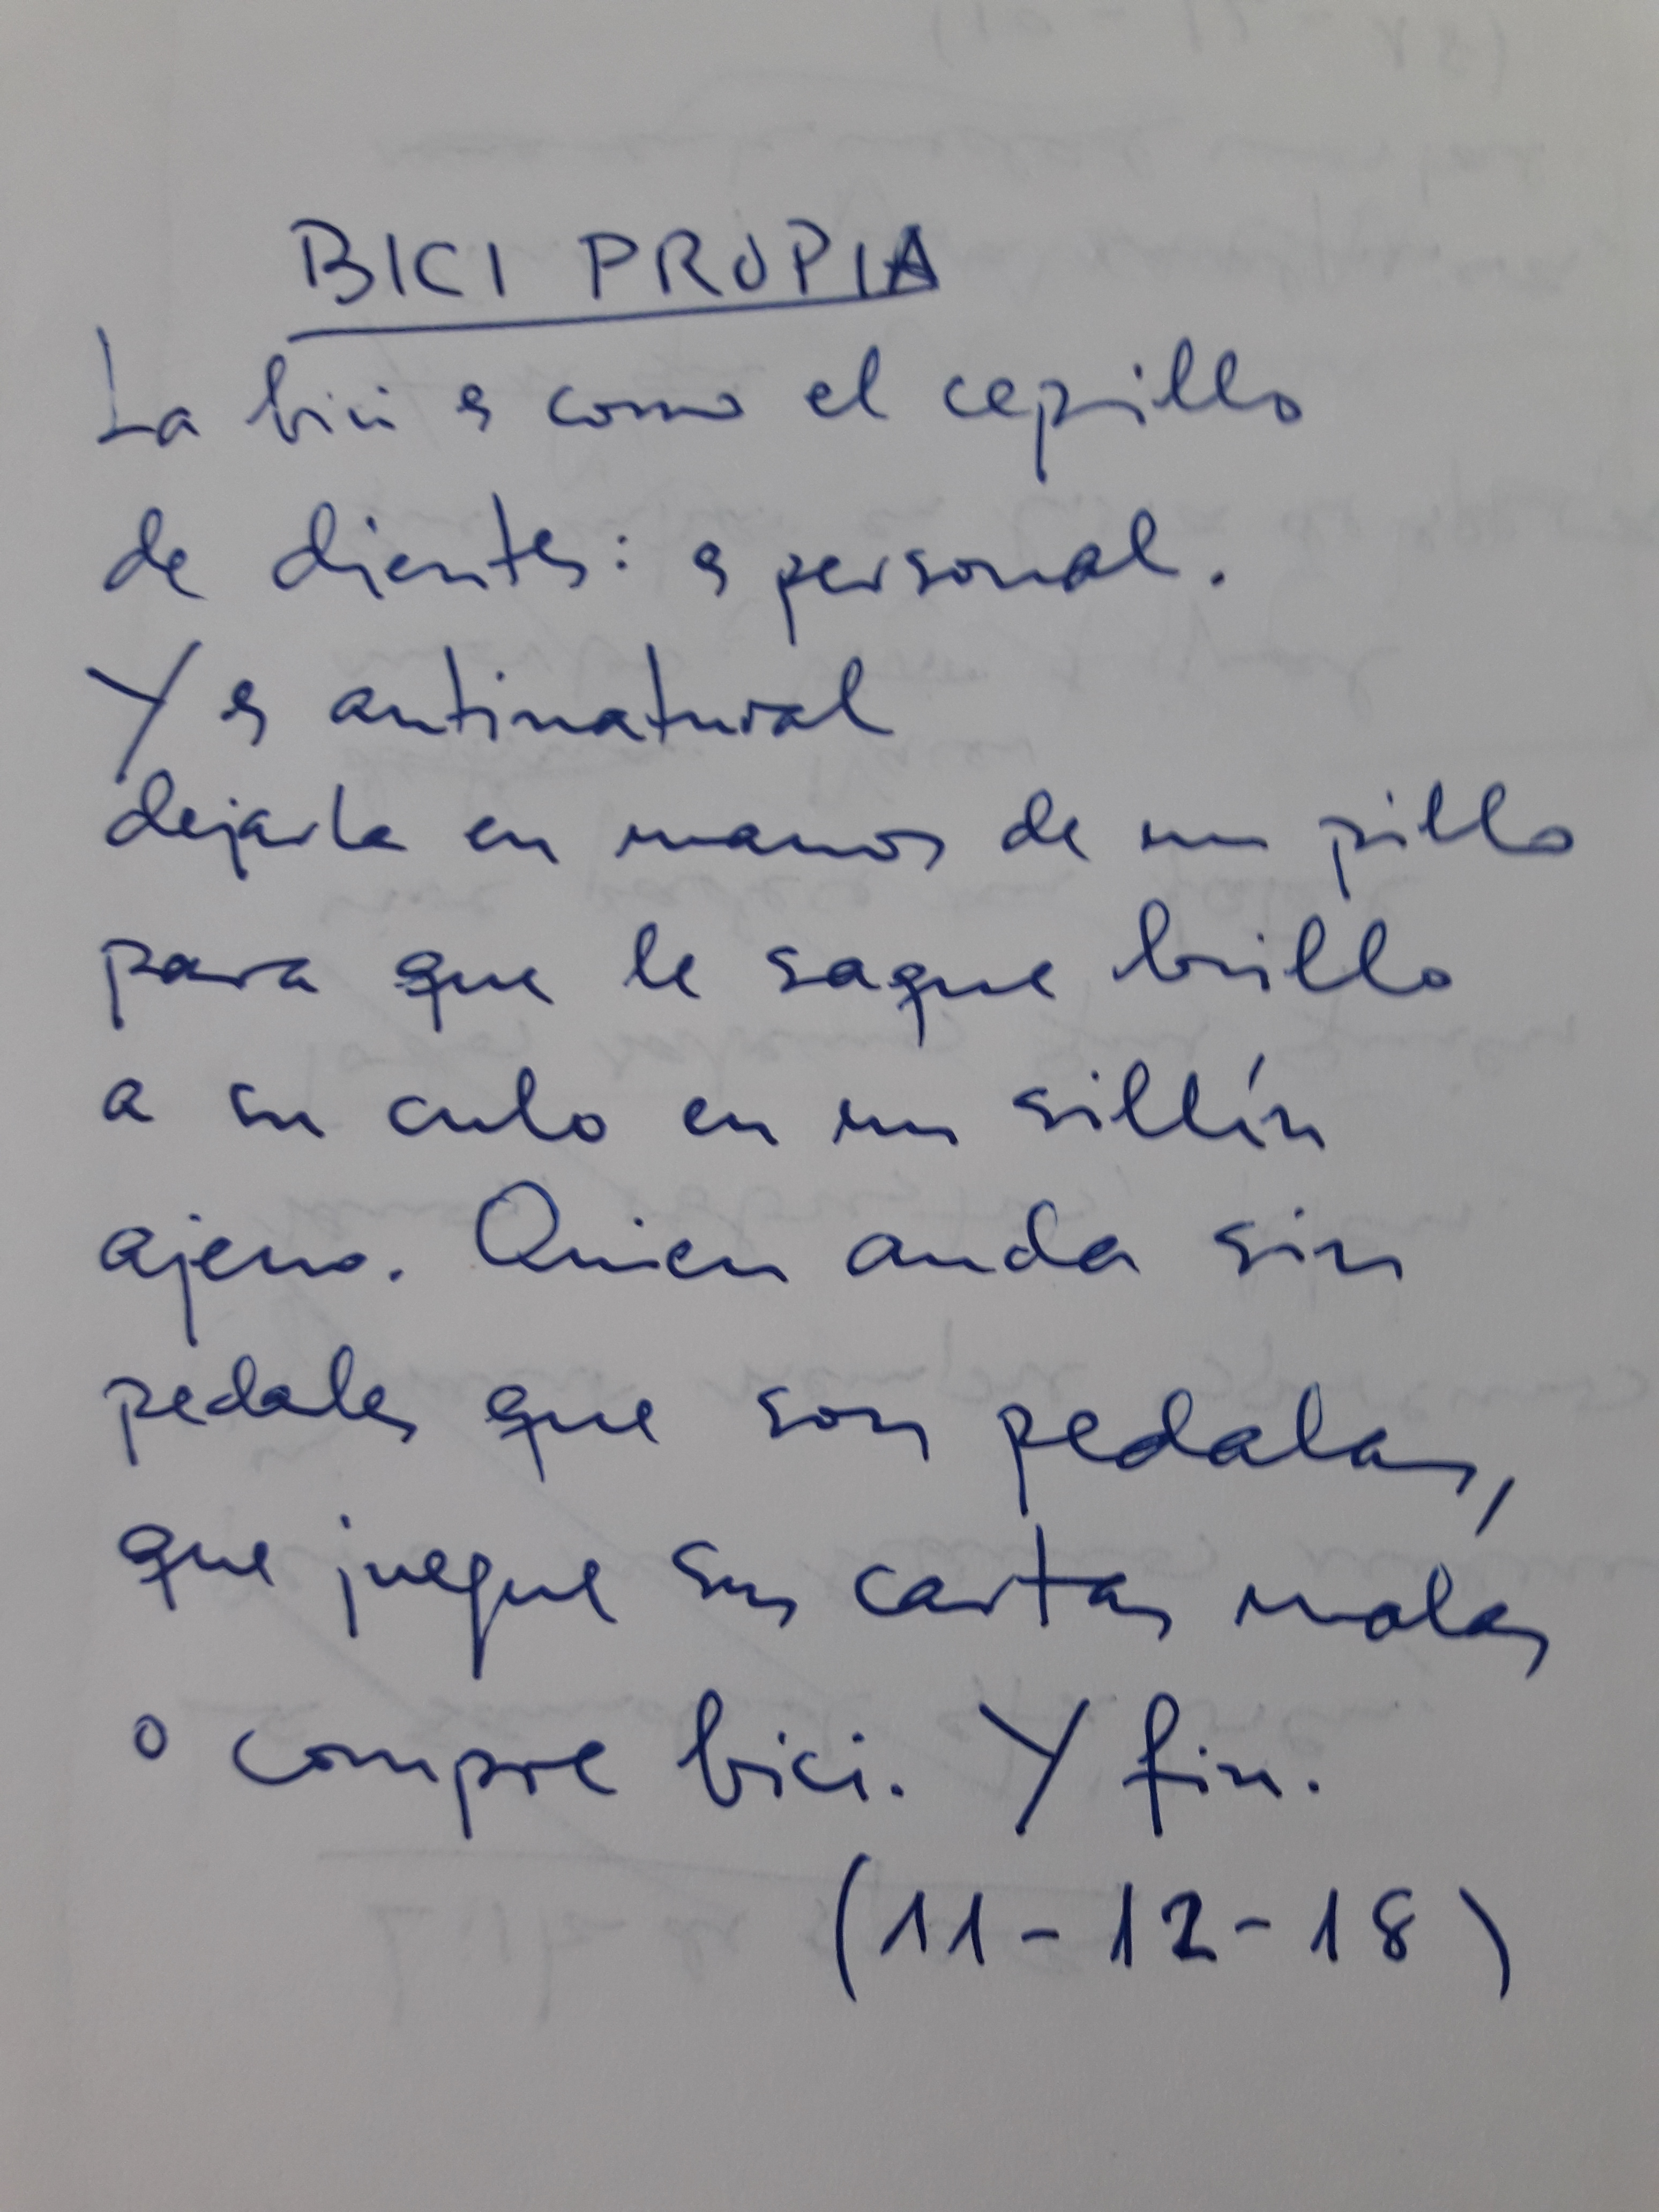 BICI PROPIA
La bici es como el cepillo
de dientes: es personal.
Y es antinatural
dejarla en manos de un pillo
para que le saque brillo
a su culo en un sillín
ajeno. Quien anda sin
pedales que son pedalas,
que juegue sus cartas malas
o compre bici. Y fin.
(11-12-18)